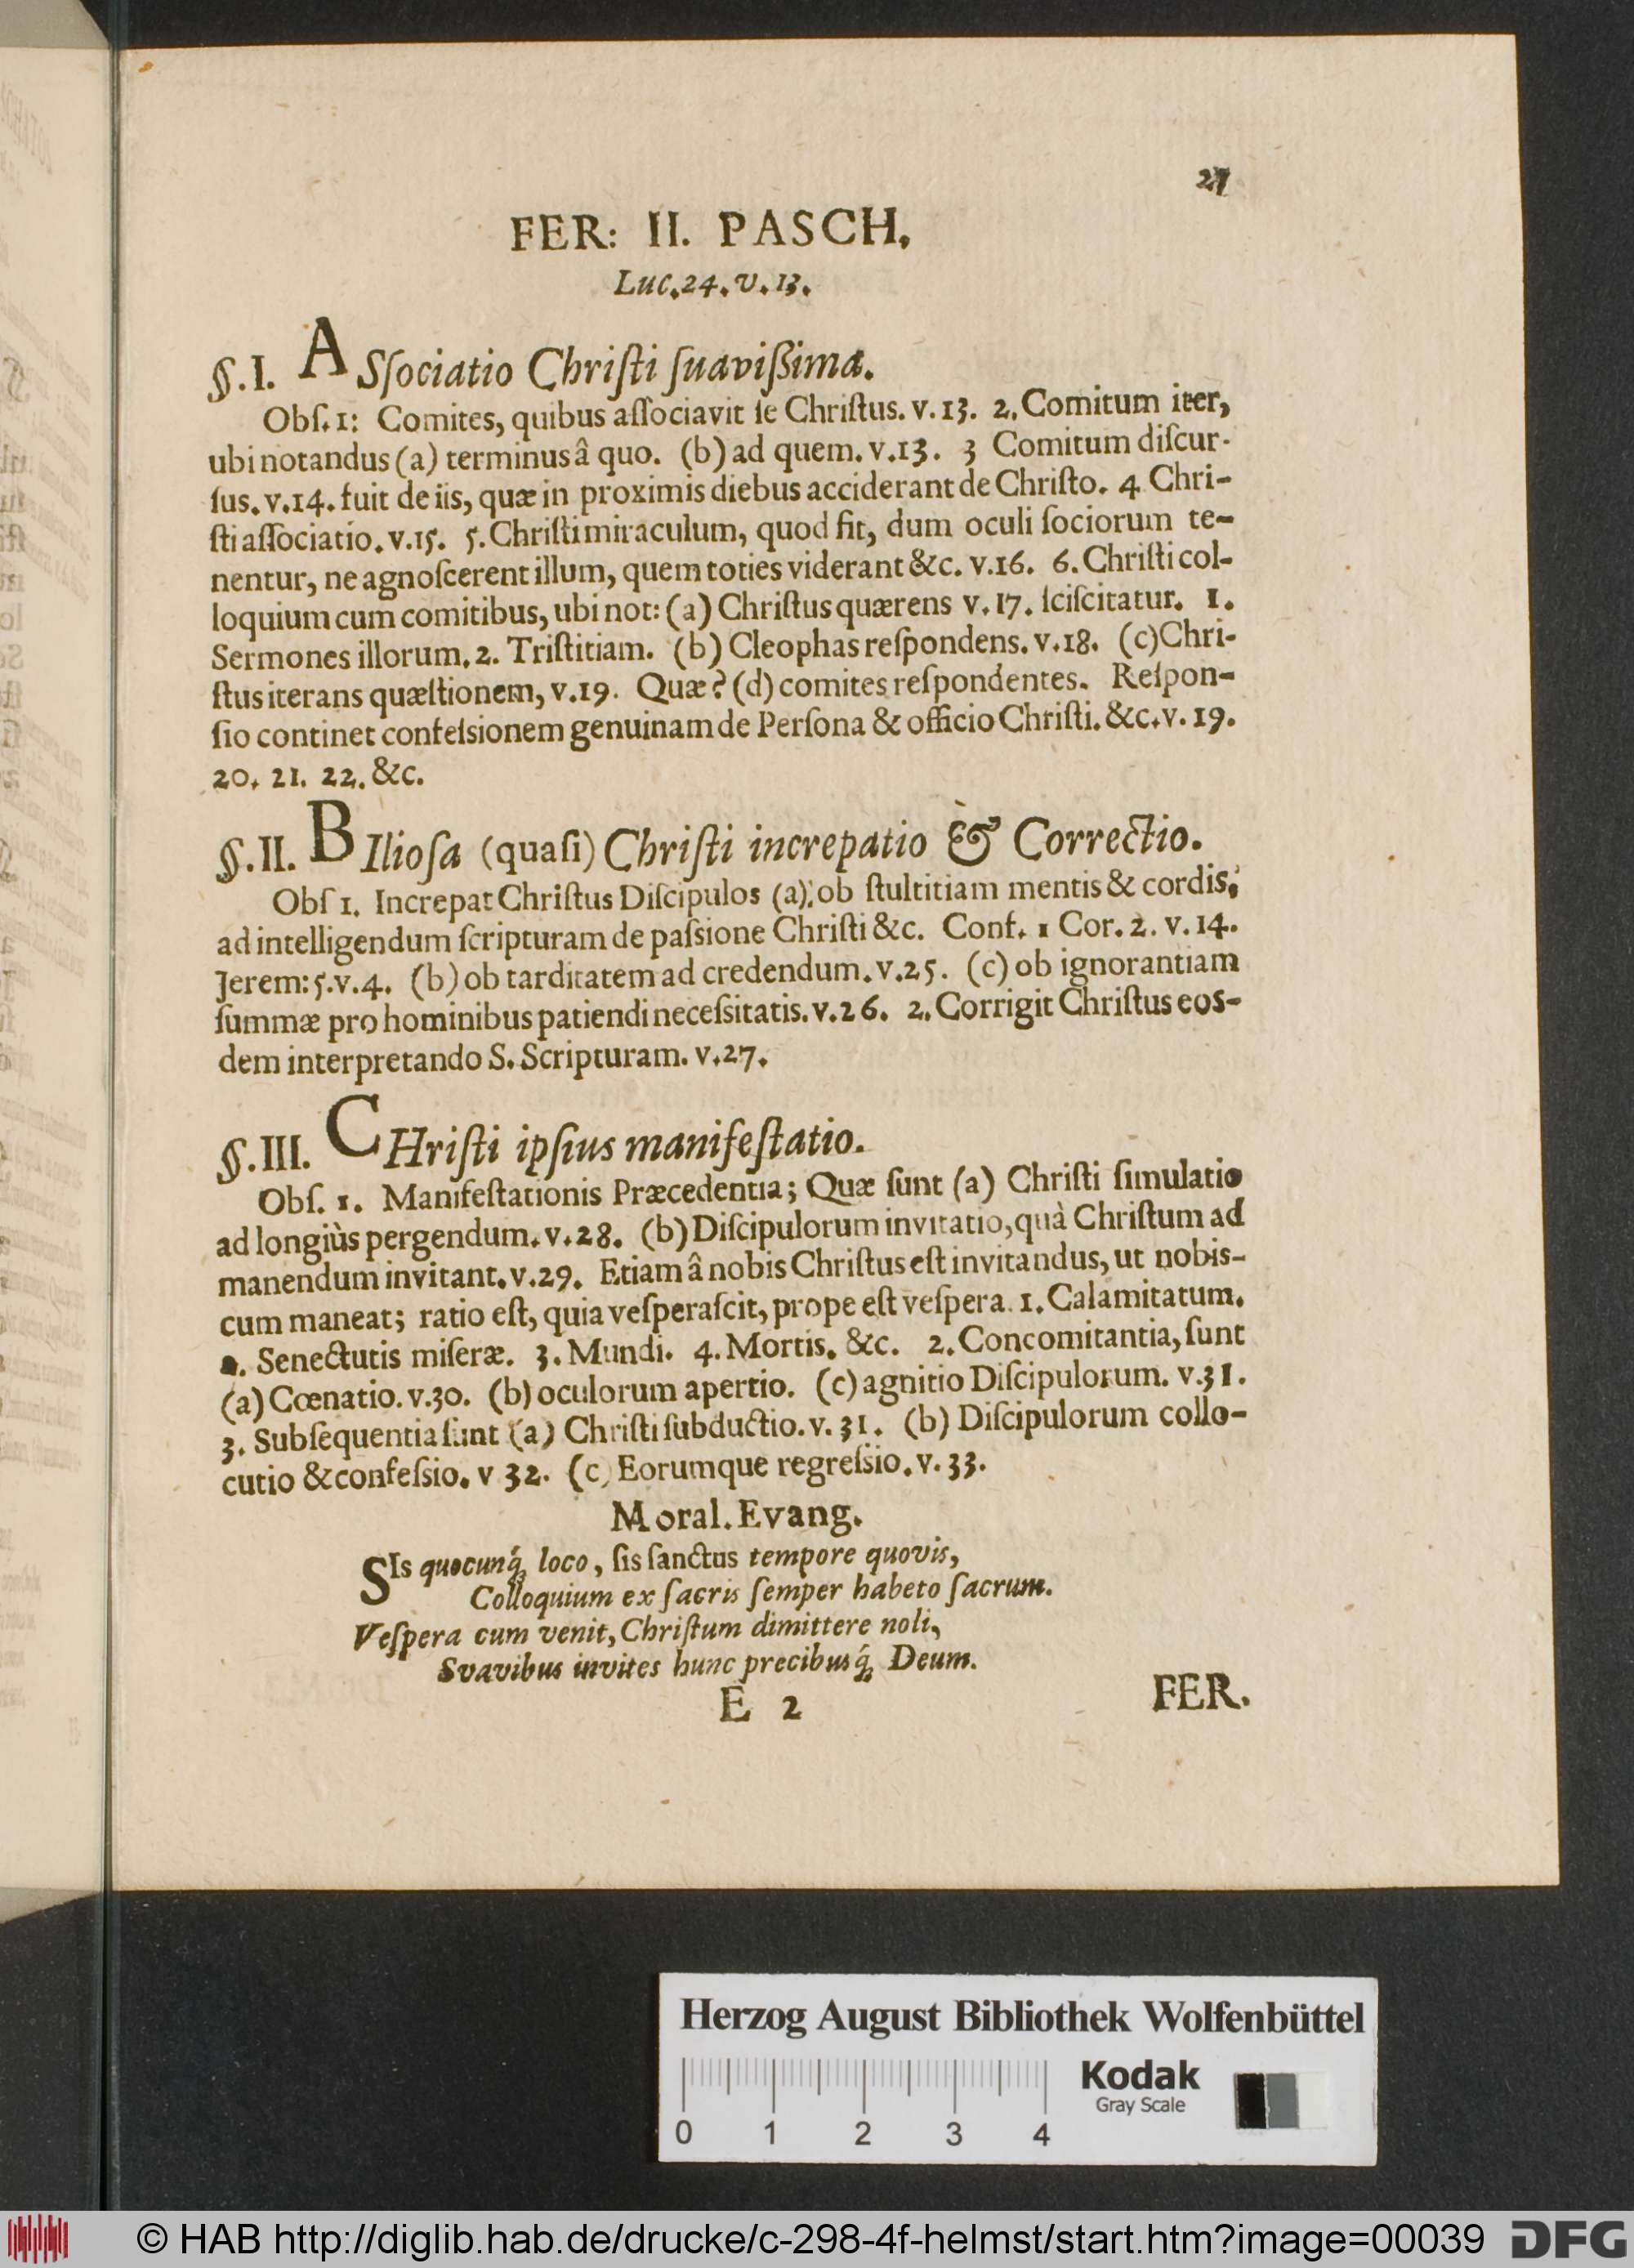 27
FER: II. PASCH.
Luc.24.v.13.
§.I. ASſociatio Chriſti ſuavißima.
Obſ.1: Comites, quibus aſſociavit ſe Chriſtus. v.13. 2.Comitum iter,
ubi notandus (a) terminus â quo. (b) ad quem. v.13. 3 Comitum diſcur-
ſus. v.14. fuit de iis, quæ in proximis diebus acciderant de Chriſto. 4 Chri-
ſti aſſociatio. v.15. 5. Chriſti miraculum, quod fit, dum oculi ſociorum te-
nentur, ne agnoſcerent illum, quem toties viderant &c. v.16. 6. Chriſti col-
loquium cum comitibus, ubi not: (a) Chriſtus quærens v.17. ſciſcitatur. 1.
Sermones illorum. 2. Triſtitiam. (b) Cleophas reſpondens. v.18. (c) Chri-
ſtus iterans quæſtionem, v.19. Quæ? (d) comites reſpondentes. Reſpon-
ſio continet confeſsionem genuinam de Perſona & officio Chriſti. &c. v. 19.
20. 21. 22. &c.
§.II. BIlioſa (quaſi) Chriſti increpatio & Correctio.
Obſ 1. Increpat Chriſtus Diſcipulos (a) ob ſtultitiam mentis & cordis,
ad intelligendum ſcripturam de paſsione Chriſti &c. Conf. 1 Cor. 2. v. 14.
Jerem: 5. v.4. (b) ob tarditatem ad credendum. v.25. (c) ob ignorantiam
ſummæ pro hominibus patiendi neceſsitatis. v.26. 2. Corrigit Chriſtus eos-
dem interpretando S. Scripturam. v.27.
§.III. CHriſti ipſius manifeſtatio.
Obſ. 1. Manifeſtationis Præcedentia; Quæ ſunt (a) Chriſti ſimulatio
ad longiùs pergendum. v.28. (b) Diſcipulorum invitatio, quà Chriſtum ad
manendum invitant. v.29. Etiam â nobis Chriſtus eſt invitandus, ut nobis-
cum maneat; ratio eſt, quia veſperaſcit, prope eſt veſpera. 1. Calamitatum.
2. Senectutis miſeræ. 3. Mundi. 4. Mortis. &c. 2. Concomitantia, ſunt
(a) Cœnatio. v.30. (b) oculorum apertio. (c) agnitio Diſcipulorum. v.31.
3. Subſequentia ſunt (a) Chriſti ſubductio. v. 31. (b) Diſcipulorum collo-
cutio & confeſsio. v 32. (c) Eorumque regreſsio. v. 33.
Moral. Evang.
SIs quocunq́; loco, ſis ſanctus tempore quovis,
Colloquium ex ſacris ſemper habeto ſacrum.
Veſpera cum venit, Chriſtum dimittere noli,
Svavibus invites hunc precibusq́; Deum.
E 2
FER.
Herzog August Bibliothek Wolfenbüttel
Kodak
Gray Scale
0 1 2 3 4
© HAB http://diglib.hab.de/drucke/c-298-4f-helmst/start.htm?image=00039
DFG